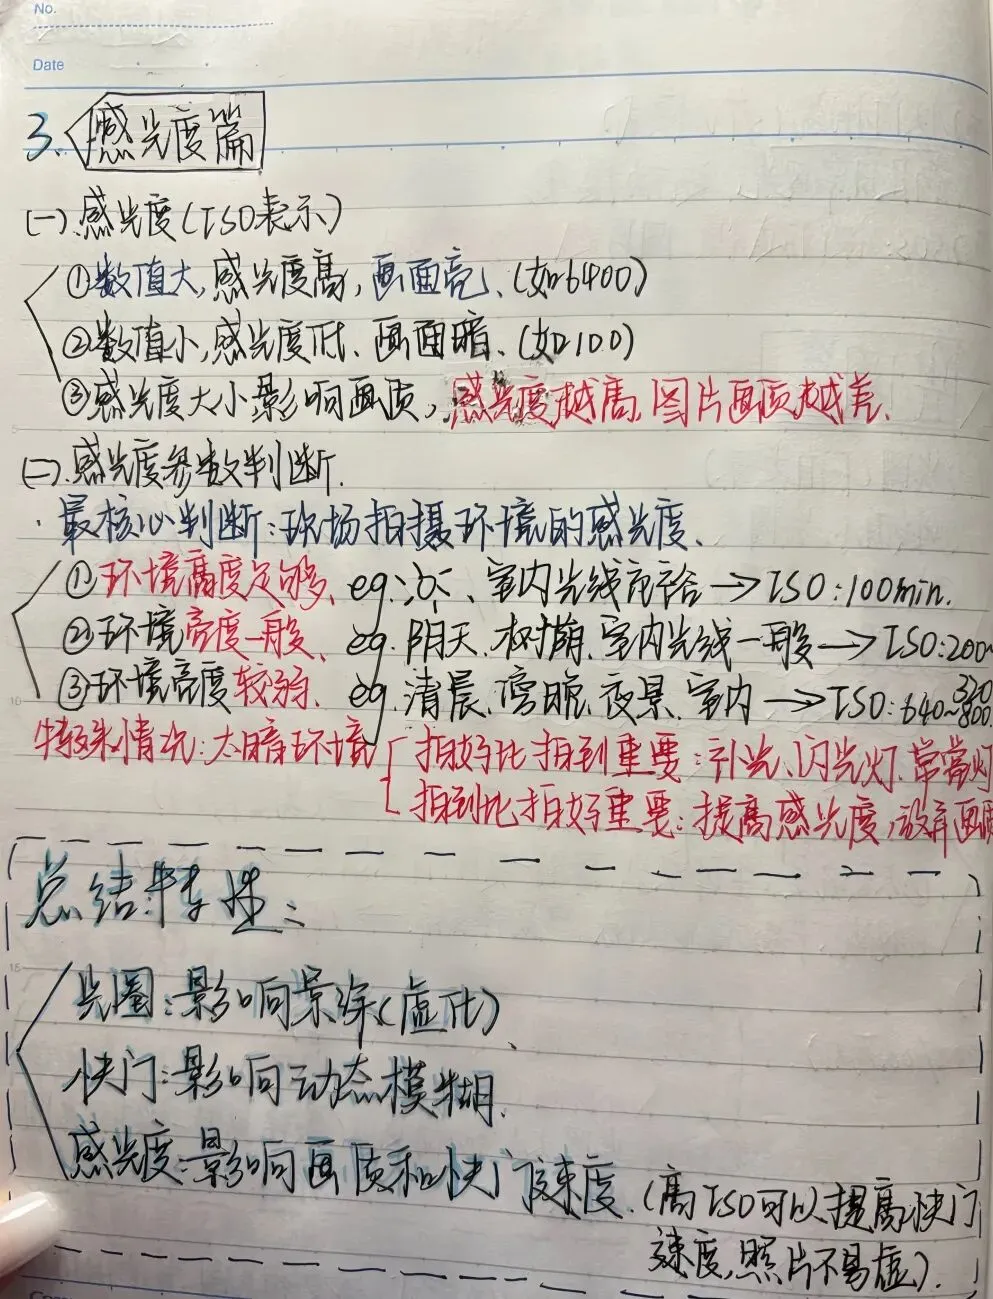 No.
Date
3. 感光度篇
(一).感光度(ISO表示)
①数值大,感光度高,画面亮、(如6400)
②数值小,感光度低、画面暗、(如100)
③感光度大小影响画质,感光度越高,图片画质越差.
(二).感光度参数判断.
·最核心判断:现场拍摄环境的感光度.
①环境高度足够、eg: 、室内光线充 →ISO:100min.
②环境亮度一般、eg.阴天.树荫.室内光线一般→ISO:200~
320
③环境亮度较弱. eg.清晨.傍晚.夜景.室内→ISO:640~800.
特殊情况:太暗环境
拍好比拍到重要:引光、闪光灯.常
拍到比拍好重要:提高感光度,放弃画质
总结特性:
光圈:影响景深(虚化)、
快门:影响动态模糊.
感光度:影响画质和快门速度.(高ISO可以提高快门
速度,照片不易虚).